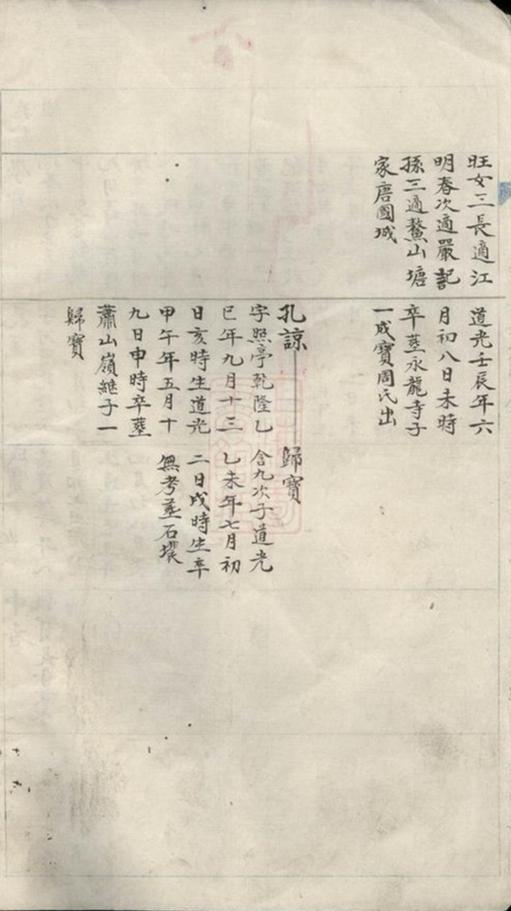 旺女三長適江
明春次適嚴記
孫三適鰲山塘
家唐國城
道光壬辰年六
月初八日未時
卒塟永龍寺子
一成寶周氏出
孔諒
字照亭乾隆乙
巳年九月十三
日亥時生道光
甲午年五月十
九日申時卒塟
蕭山嶺継子一
歸寶
歸寶
含九次子道光
乙未年七月初
二日戌時生卒
無考塟石壪